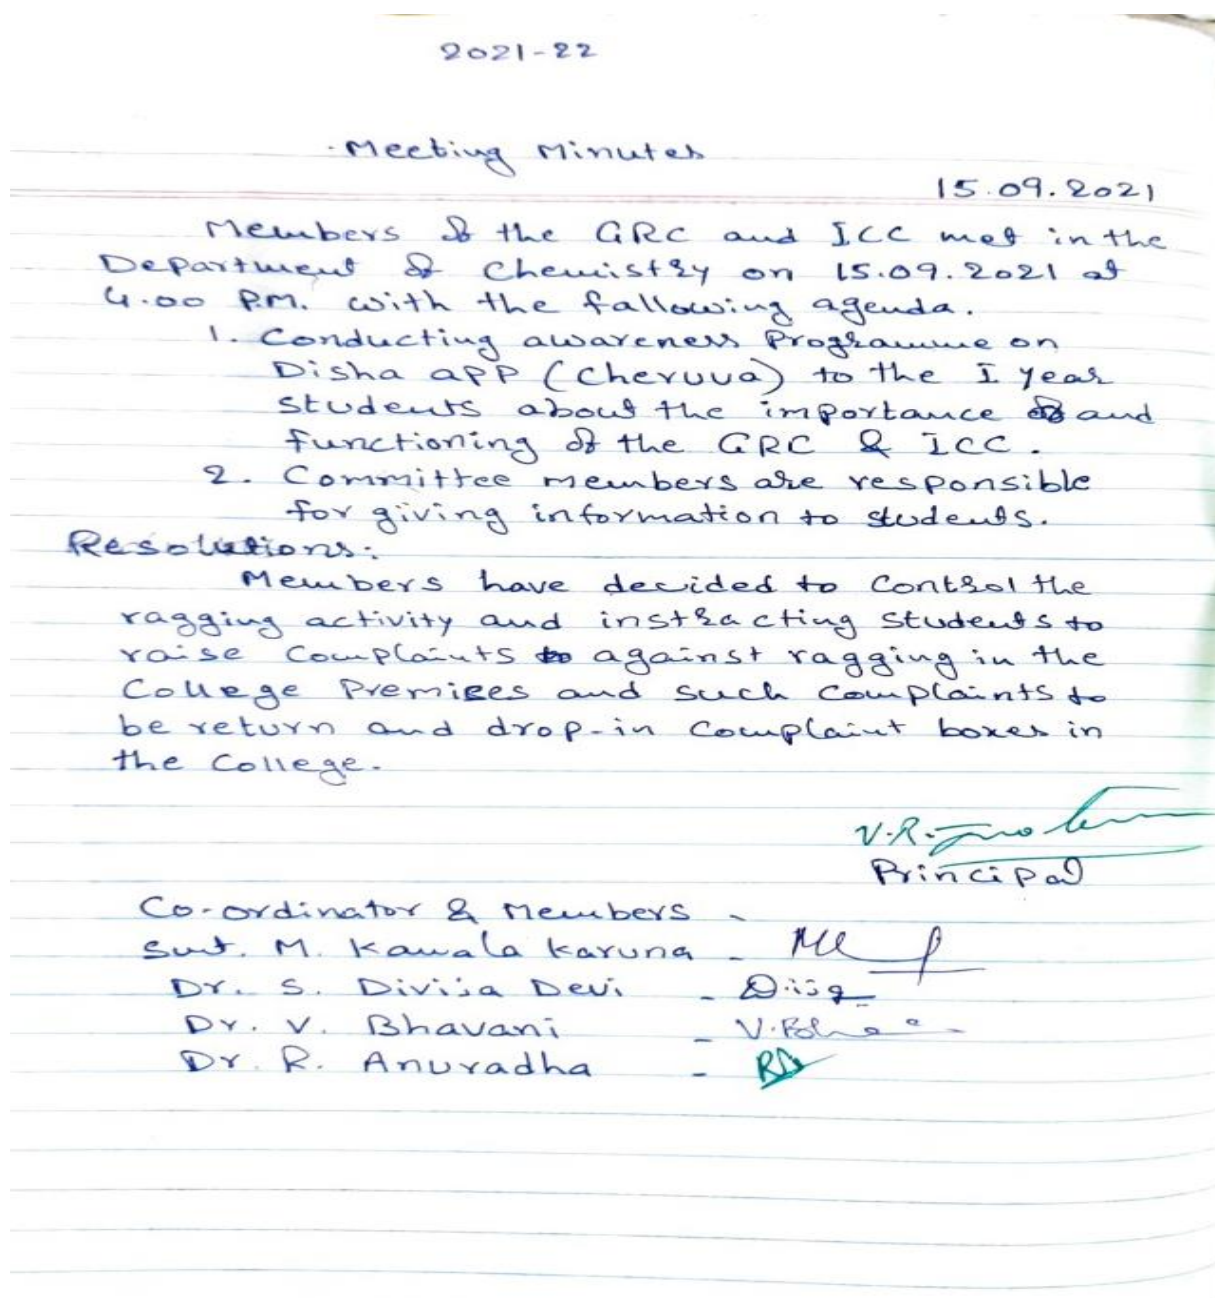 2021-22
Meeting Minutes
15.09.2021
Members of the GRC and ICC met in the
Department of Chemistry on 15.09.2021 at
4.00 P.M. with the fallowing agenda.
1. Conducting awareness Programme on
Disha app (Cheruva) to the I year
Students about the importance and
functioning of the GRC & ICC.
2. Committee members are responsible
for giving information to students.
Resolutions:
Members have decided to Control the
ragging activity and instracting students to
raise Complaints against ragging in the
College Premises and such complaints to
be return and drop-in Complaint boxes in
the College.
V.R.
Principal
Co-ordinator & Members -
Smt. M. Kamala Karuna -
Dr. S. Divija Devi -
Dr. V. Bhavani - V.
Dr. R. Anuradha -